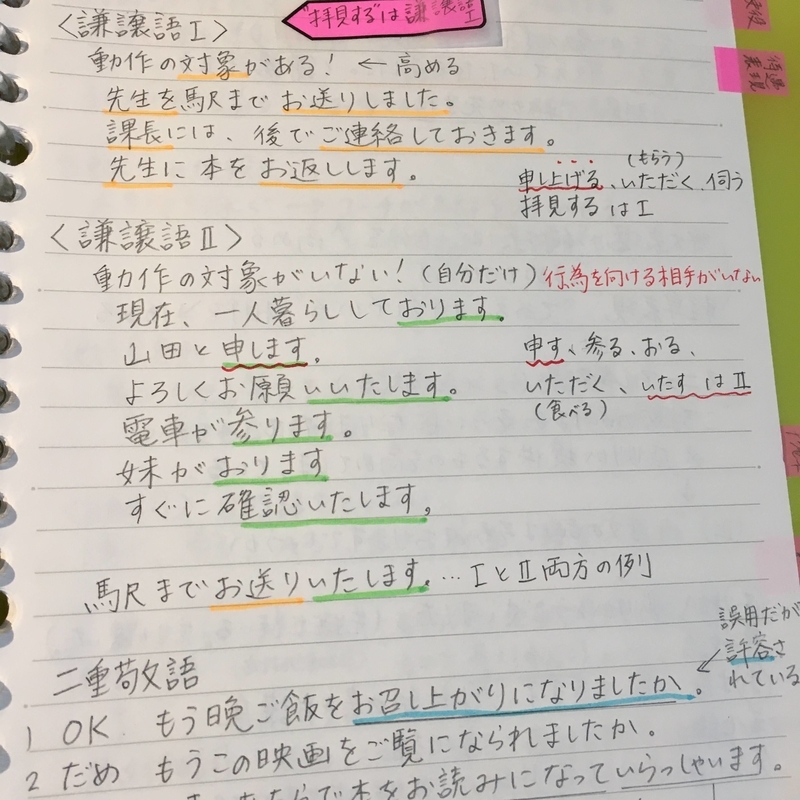 "拝見する"は謙譲語I
<謙譲語I>
動作の対象がある! ← 高める
先生を駅までお送りしました。
課長には、後でご連絡しておきます。
先生に本をお返しします。
(もらう)
申し上げる、いただく、伺う
拝見する はI
待遇
表現
<謙譲語II>
動作の対象がいない!(自分だけ)行為を向ける相手がいない
現在、一人暮らししております。
山田と申します。
よろしくお願いいたします。
電車が参ります。
妹がおります
すぐに確認いたします。
申す、参る、おる、
いただく、いたす はII
(食べる)
駅までお送りいたします。…IとII両方の例
二重敬語
誤用だが
許容さ
れている
1 OK もう晩ご飯をお召し上がりになりましたか。
2 だめ もうこの映画をご覧になられましたか。
本をお読みになっていらっしゃいます。